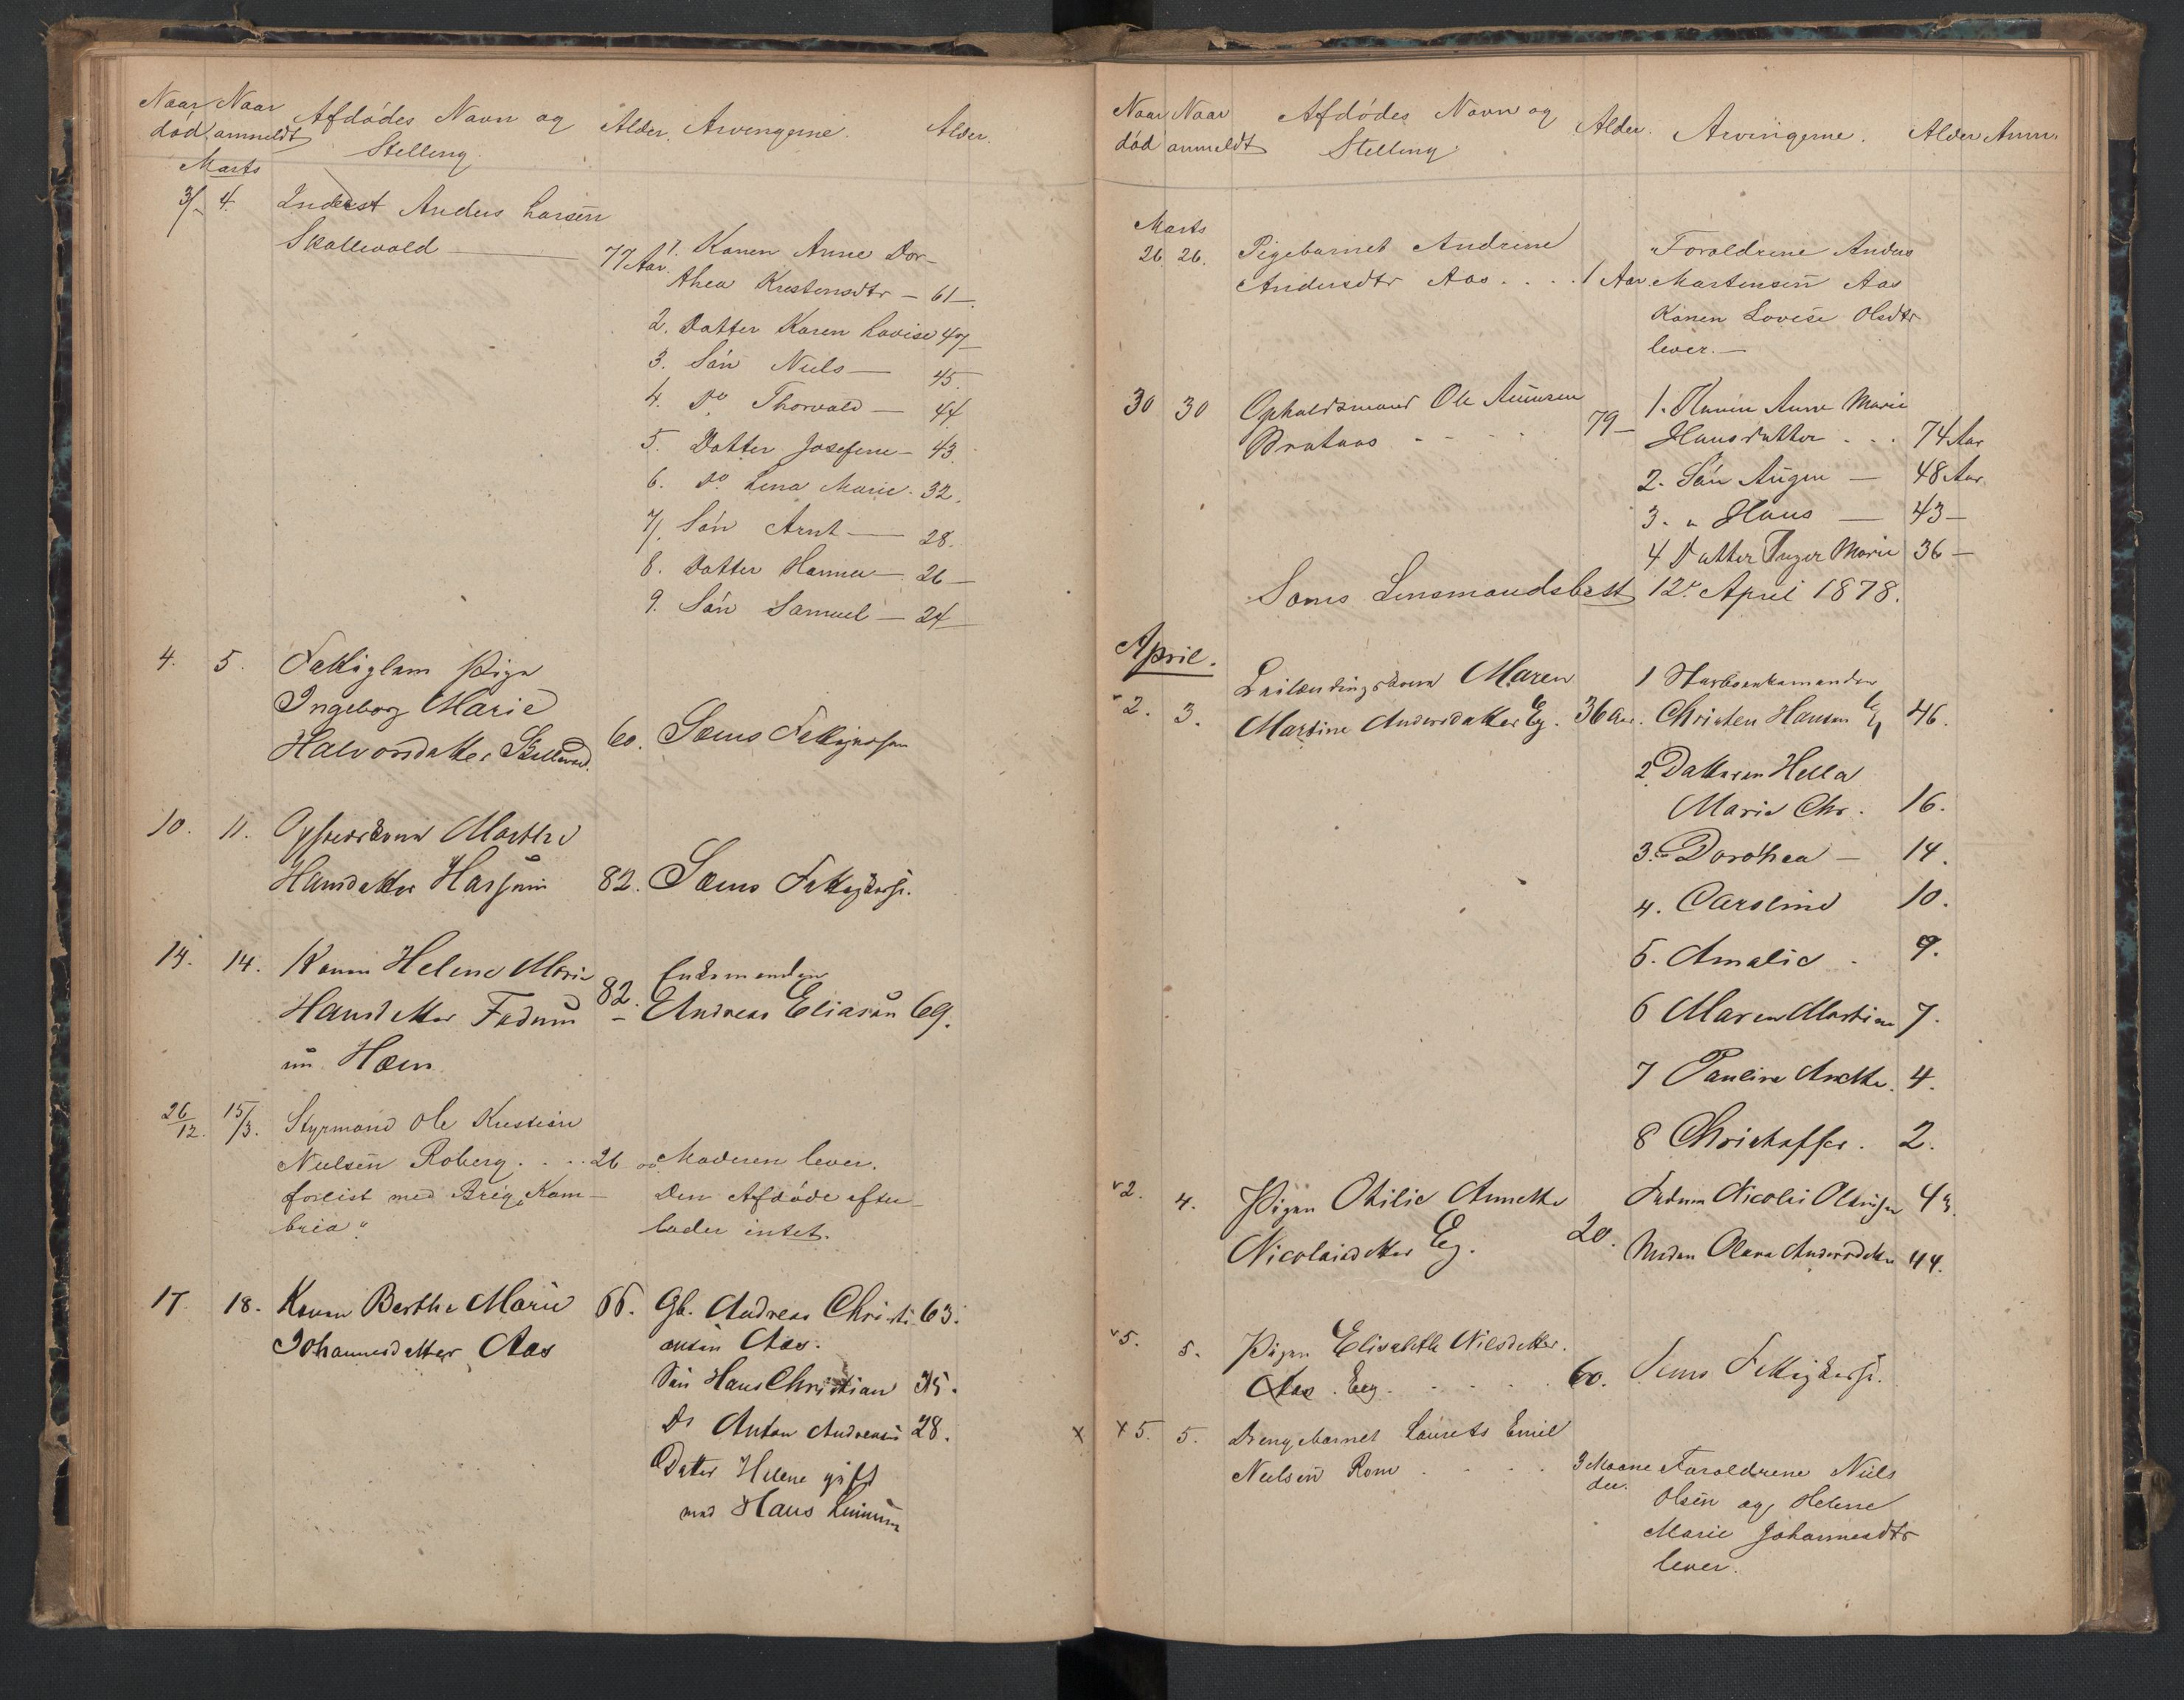 Naar Naar Afdödes Navn og Alder. Arvingerne. Alder.
död anmeldt Stelling.
Marts
3/ 4. Inderst Anders Larsen
Skallevold 77 Aar. 1. Konen Anne Dor-
thea Kristensdtr - 61 -
2. Datter Karen Lovise 47
3. Sön Niels - 45.
4. Do Thorvald - 44
5. Datter Josefine - 43.
6. Do Lina Marie - 32.
7. Sön Arnt - 28.
8. Datter Hanna - 26 -
9. Sön Samuel - 24 -
4. 5. Fattiglem Pige
Ingeborg Marie
Halvorsdatter 60. Sems
10. 11. Marthe
Hansdatter 82. Sems
14. 14. Konen Helene Marie 82. Enkemanden
Hansdatter Fadum - Andreas Eliasen 69.
26/12. 15/3. Styrmand Ole Kristian
Nielsen Roberg. . . . 26 Moderen lever.
forlist med Brig „Kam- Den Afdöde efter-
bria". lader intet.
17. 18. Konen Berthe Marie 66. Gb. Andreas Christi- 63.
Johannesdatter Aas ansen Aas.
Sön Hans Christian 35.
Do Anton Andreasen 28.
Datter Helene gift
med Hans
Naar Naar Afdödes Navn og Alder. Arvingerne. Alder Anm.
död anmeldt Stelling.
Marts
26. 26. Pigebarnet Andrine Foroldrene Anders
Andersdtr Aas . . . . 1 Aar. Martensen Aas
Konen Lovise Olsdtr
lever. -
30 30 Opholdsmand Ole Amunsen 79 - 1. Konen Anne Marie
Brataas - - - - Hansdatter . . . 74 Aar
2. Sön - 48 Aar
3. „ Hans - 43 -
4 Datter Inger Marie 36 -
Sems Lensmandsbest 12. April 1878.
April.
2. 3. Leilendingskone Maren 1
Martine Andersdatter Eg. 36 Aar. Christen Hansen Eg 46.
2 Datteren Hella
Marie Chr. 16.
3. Dorothea - 14.
4. Caroline 10.
5. Amalie . 9.
6 Maren Martine 7.
7 Pauline Anette. 4.
8 Christoffer. 2.
2. 4. Pigen Otilie Annette Nicolai
Nicolaisdatter Eg. 20. Andersdatter 44.
5. 5. Pigen Elisabeth Nilsdatter.
Aas . Eeg . - - - 60. Sems
x x 5. 5. Drengebarnet Laurits Emil
Nielsen Rom . . . . 3 Maane Foroldrene Niels
der. Olsen og Helene
Marie Johannesdtr
lever.